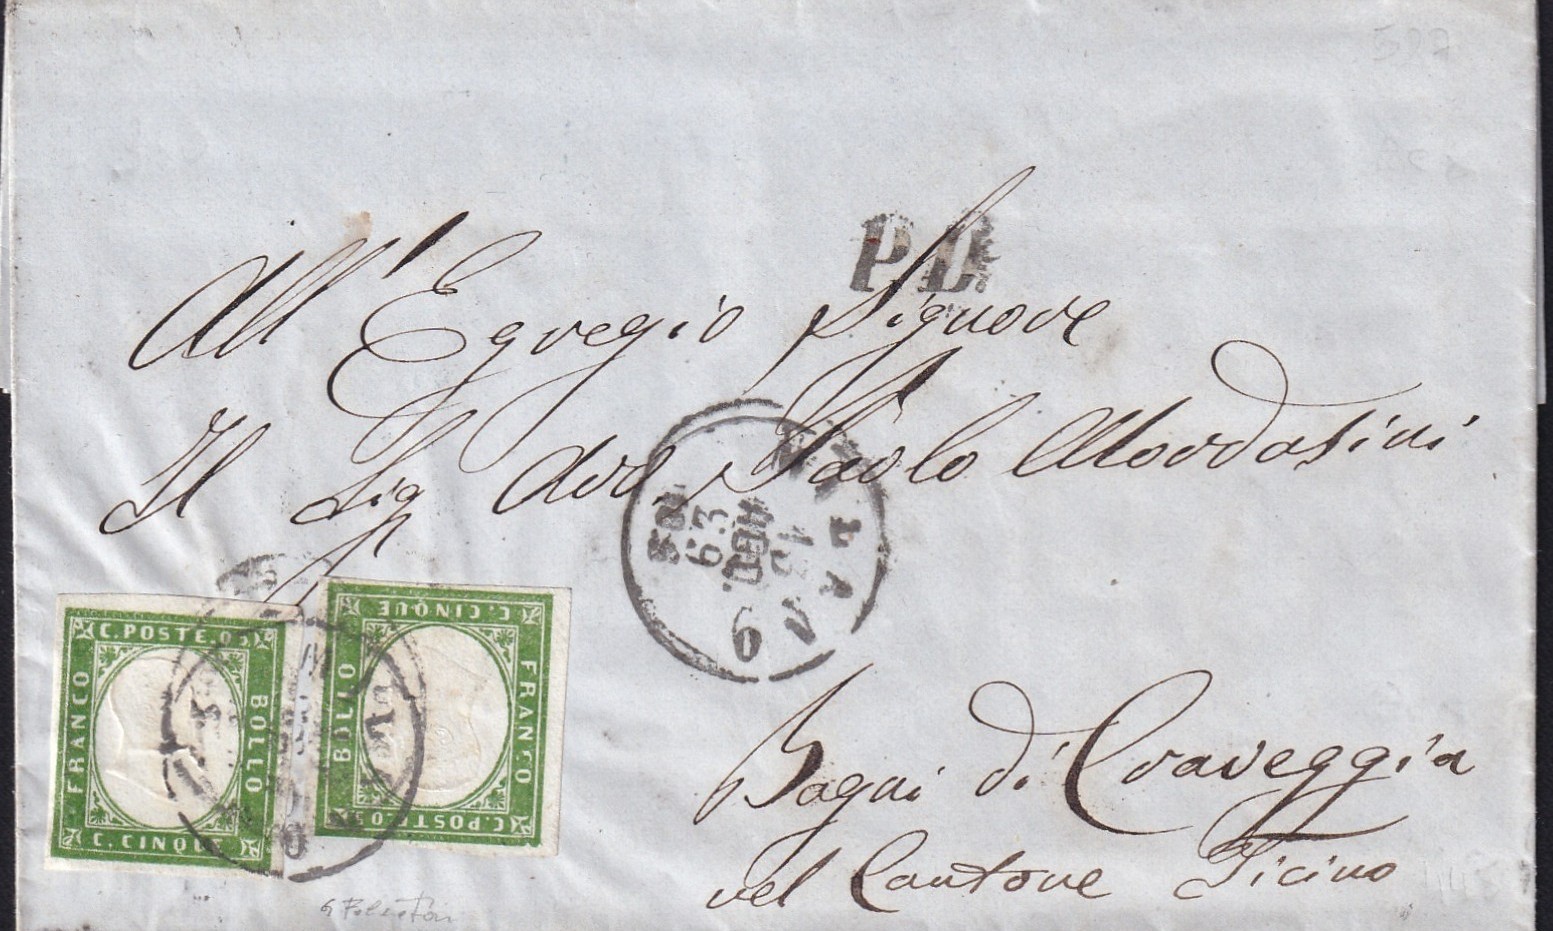 P.D.
All' Egregio Signore
Il Sig Avv Paolo Mordasini
63
Bagni di Craveggia
nel Cantone Ticino
C. POSTE.
FRANCO
BOLLO
C. CINQUE
C. CINQUE
BOLLO
FRANCO
C. POSTE.